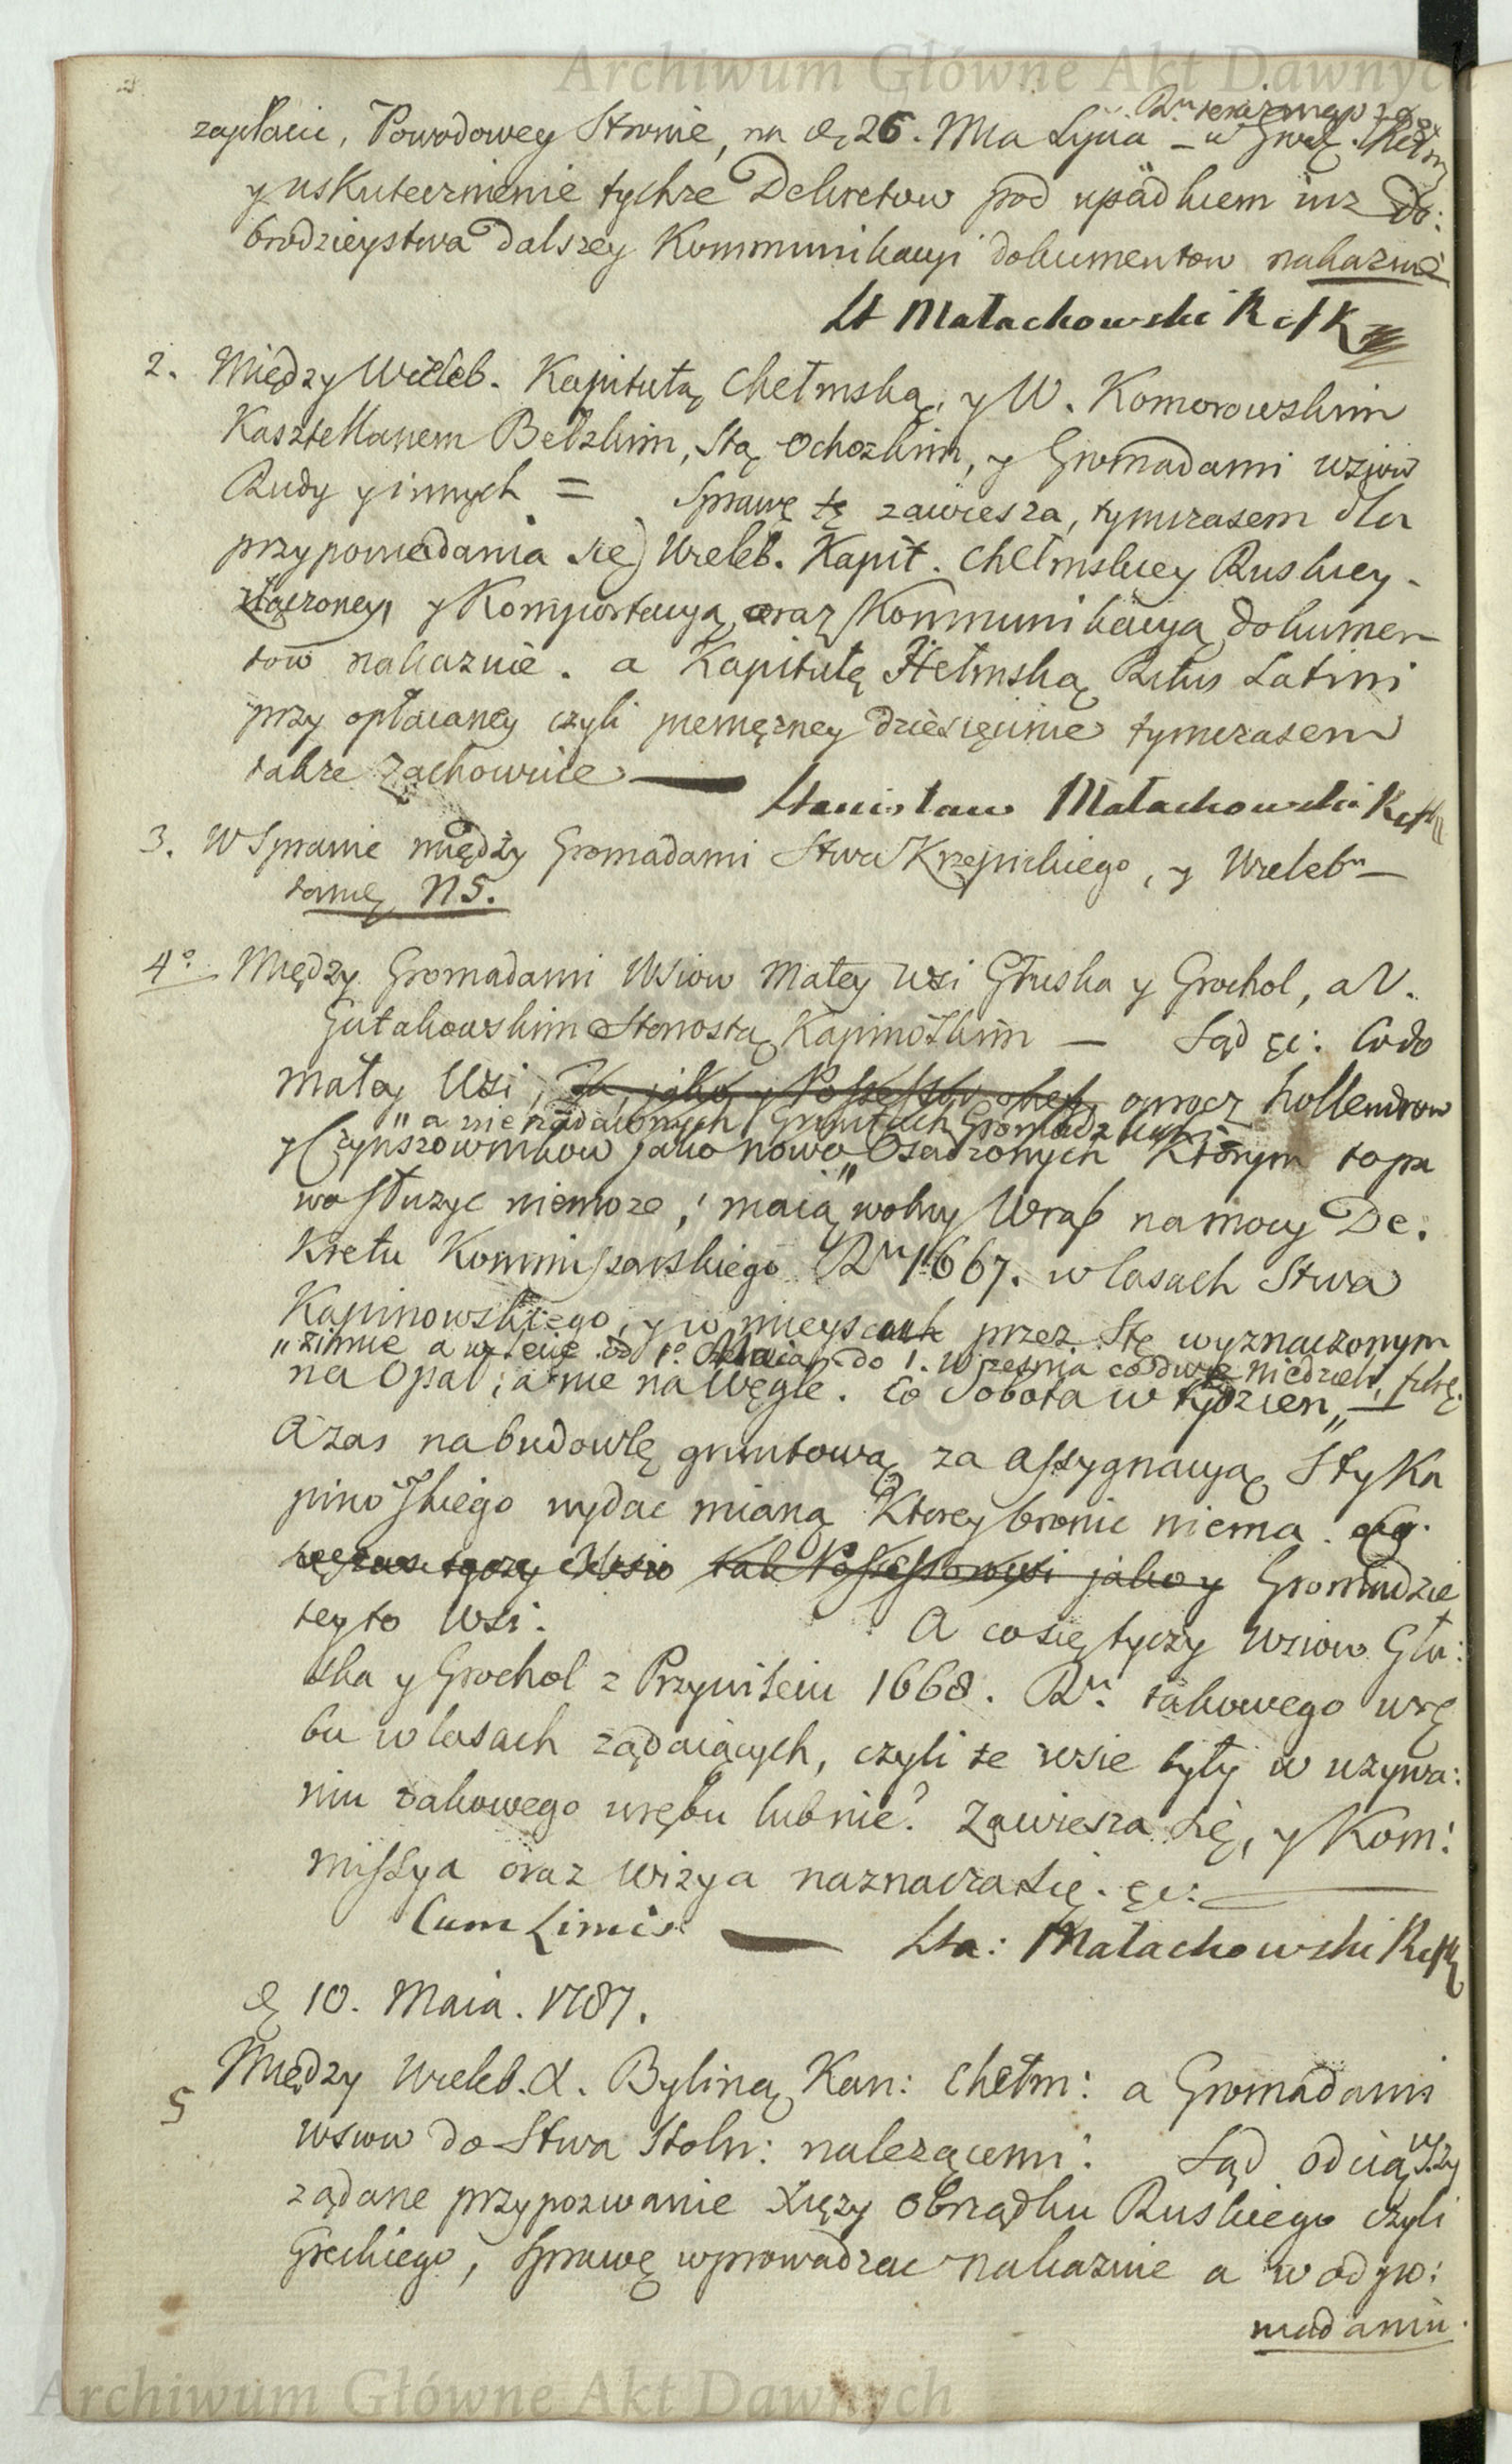 Archiwum Główne Akt Dawnych
zapłacic, Powodowey Stronie, na d. 26. Mca Lipca
y uskutecznienie tychże Dekretow pod upadkiem iuz do:
brodzieystwa dalszey Kommunikacyi dokumentow nakazuie
St Małachowski R
2. Między Wieleb. Kapitułą Chełmską, y W. Komorowskim
Kasztellanem Bełzkim, Stą Ochozkim, y Gromadami wsiow
Rudy y innych = Sprawę tę zawiesza, tymczasem dla
przypowiadania się Wieleb. Kapit. Chełmskiey Ruskiey
złączoney, y Komportacyą oraz Kommunikacyą dokumen
tow nakazuie. a Kapitułę Hełmską Ritus Latini
przy opłacaney czyli pieniężney dziesięcinie tymczasem
także zachowuie
Stanisław Małachowski
3. W Sprawie między Gromadami Stwa Krzepickiego, y Wieleb
N5.
4° Między Gromadami Wsiow Małey Wsi Głuska y Grochol, a W.
Gutakowskim Starostą Kapinoskim — Sąd etc: Co do
małey Wsi, jako y oprocz hollendrow
" a nie zadawnych Gruntach Gromadzkich
y Czynszownikow jako nowo Osadzonych którym to pra
wo służyc niemoże, maią wolny Wrąb na mocy De:
kretu Kommissarskiego Ru 1667. w lasach Stwa
Kapinowskiego, y w mieyscach przez Stę wyznaczonym
" zimie a w lecie od 1° Maia do 1. Wrzesnia co dwie niedziele,
na Opał, a nie na Węgle. co Sobota w tydzien "
A zas na budowlę gruntową za Assygnacyą Sty Ka
pinoskiego wydac mianą Ktorey bronic niema.
jako y Gromadzie
teyto Wsi. A co się tyczy Wsiow Głu:
ska y Grochol z Przywileiu 1668. Ru takowego wrę
bu w lasach ządaiących, czyli te wsie były w uzywa:
niu takowego wrębu lub nie? Zawiesza się, y Kom:
missya oraz Wizya naznacza się. etc:
Cum Limis. — Sta: Małachowski
d. 10. Maia. 1787.
5 Między Wieleb. X. Byliną Kan: Chełm: a Gromadami
wsiow do Stwa Stoln: nalezącemi: Sąd
ządane przypozwanie Xięzy Obrządku Ruskiego czyli
Greckiego, Sprawę wprowadzac nakazuie a w odpo:
wiadaniu
Archiwum Główne Akt Dawnych